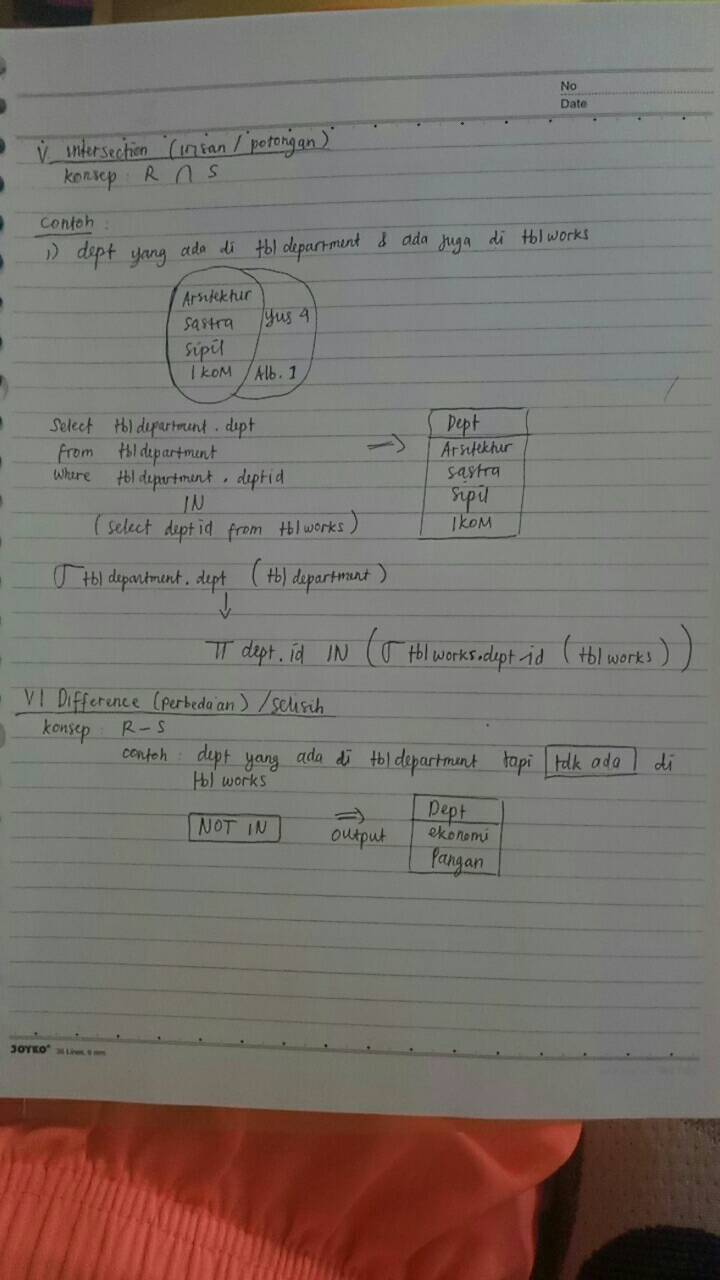 No
Date
V Intersection (irisan / potongan)
konsep : R ∩ S
Contoh :
1) dept yang ada di tbl department & ada juga di tbl works
Arsitektur
Sastra
Sipil
IKOM
Yus 4
Alb. 1
Select tbl department . dept
From tbl department
Where tbl department . dept id
IN
(select dept id from tbl works)
⇒
Dept
Arsitektur
Sastra
Sipil
IKOM
σ tbl department. dept (tbl department)
↓
π dept. id IN (σ tbl works.dept-id (tbl works))
VI Difference (perbedaan) / selisih
konsep : R - S
contoh : dept yang ada di tbl department tapi tdk ada di
tbl works
NOT IN ⇒
output
Dept
ekonomi
Pangan
JOYKO